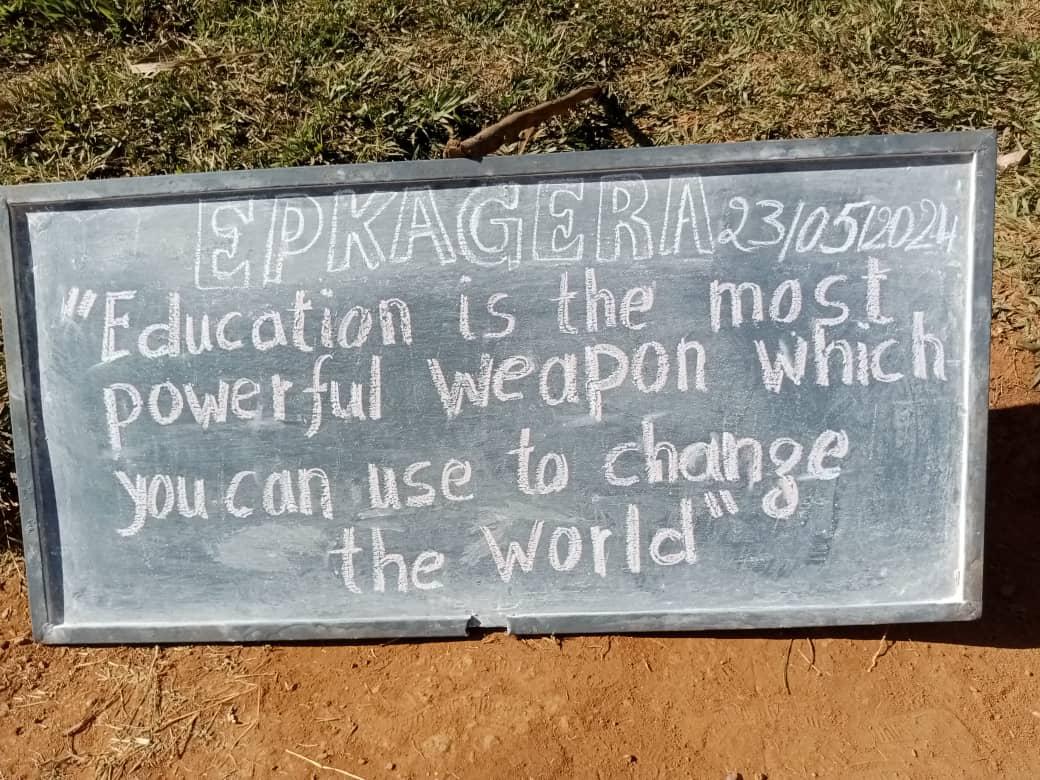 EPKAGERA 23/05/2024
"Education is the most
powerful weapon which
you can use to change
the world"